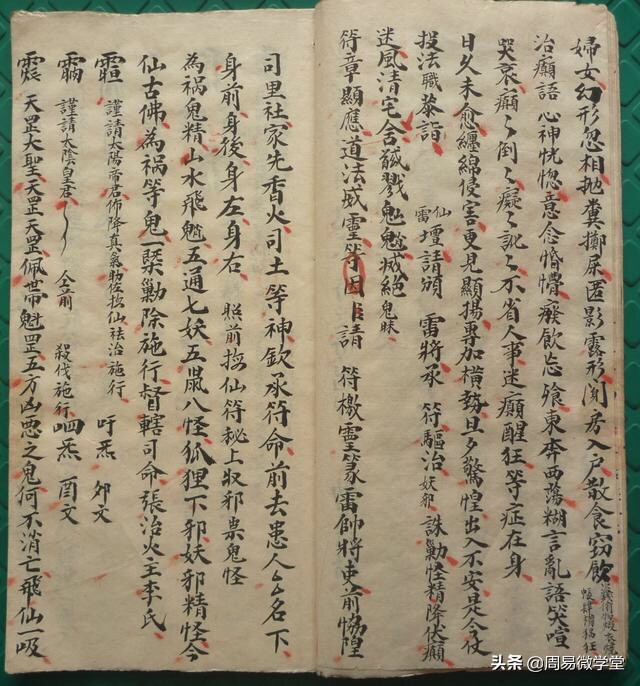 婦女幻形忽相拋糞擲屎匿影露形閱房入戶散食窃飲
治癲語心神恍惚意念惛懵癈飲忘飱東奔西蕩糊言亂語哭喧
哭哀癲〻倒〻癡〻訛〻不省人事迷癲醒狂等症在身
日久未愈纏綿侵害更見顯揚專加橫勢旦夕驚惶出入不安是今仗
投法職恭詣 仙雷壇請頒 雷將承 符驅治妖邪 誅勦怪精降伏癲
迷風清宅舍 魁魅滅絕鬼昧
符章顯應道法威霊等因 請 符檄霊篆雷帥將吏前恊隍
司里社家先香火司土等神欽承符命前去患人厶名下
身前身後身左身右 照前按仙符秘上収邪祟鬼怪
為禍鬼精山水飛魅五通七妖五鼠八怪狐狸下邪妖邪精怪今
仙古佛為禍等鬼一槩勦除施行督轄司命張治火王李氏
謹請太陽帝君佈降真氣 仙祛治施行 吁炁 卯文
謹請太陰皇君 仝前 殺伐施行 呬炁 酉文
天罡大聖天罡天罡佩帶魁罡五方凶惡之鬼何不消亡飛仙一吸
头条 @周易微学堂